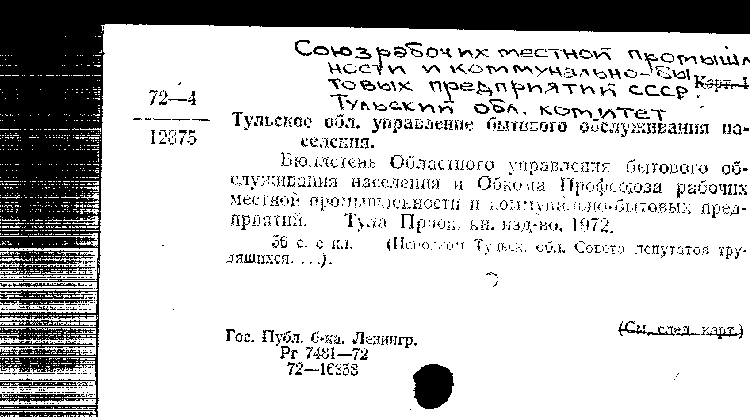 Союз рабочих местной промышл
ности и коммунально-бы
товых предприятий СССР.
Карт. 1
Тульский обл. комитет
72—4
12375
Тульское обл. управление бытового обслуживания на-
селения.
Бюллетень Областного управления бытового об-
служивания населения и Обкома Профсоюза рабочих
местной промышленности и коммунально-бытовых пред-
приятий. Тула Приок. кн. изд-во. 1972.
56 с. с ил. (Исполком Тульск. обл. Совета депутатов тру-
дящихся. ...).
(См. след. карт.)
Гос. Публ. б-ка. Ленингр.
Рг 7481—72
72—16358